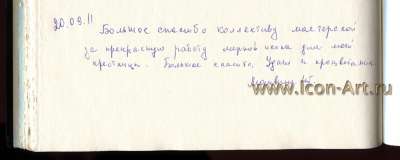 20.09.11
Большое спасибо коллективу мастерской
за прекрасную работу иконы для моей
крестницы. Большое спасибо, Удачи и процветания
www.Icon-Art.ru